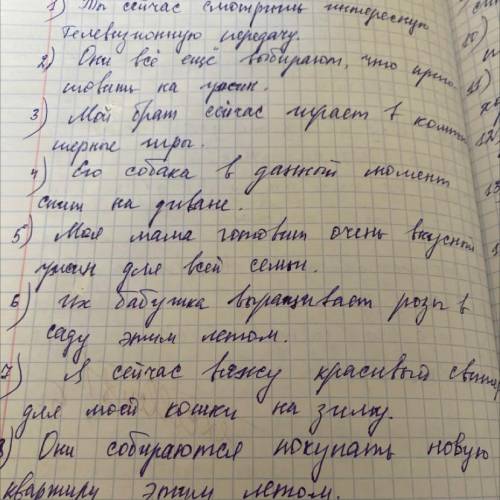 1) Ты сейчас смотришь интересную
телевизионную передачу.
2) Они всё ещё выбирают, что приго-
товить на ужин.
3) Мой брат сейчас играет в компь
терные игры.
4) Его собака в данный момент
спит на диване.
5) Моя мама готовит очень вкусный
ужин для всей семьи.
6) Их бабушка выращивает розы в
саду этим летом.
7) Я сейчас вяжу красивый свитер
для моей кошки на зиму.
8) Они собираются покупать новую
квартиру этим летом.
10)
11)
12)
13